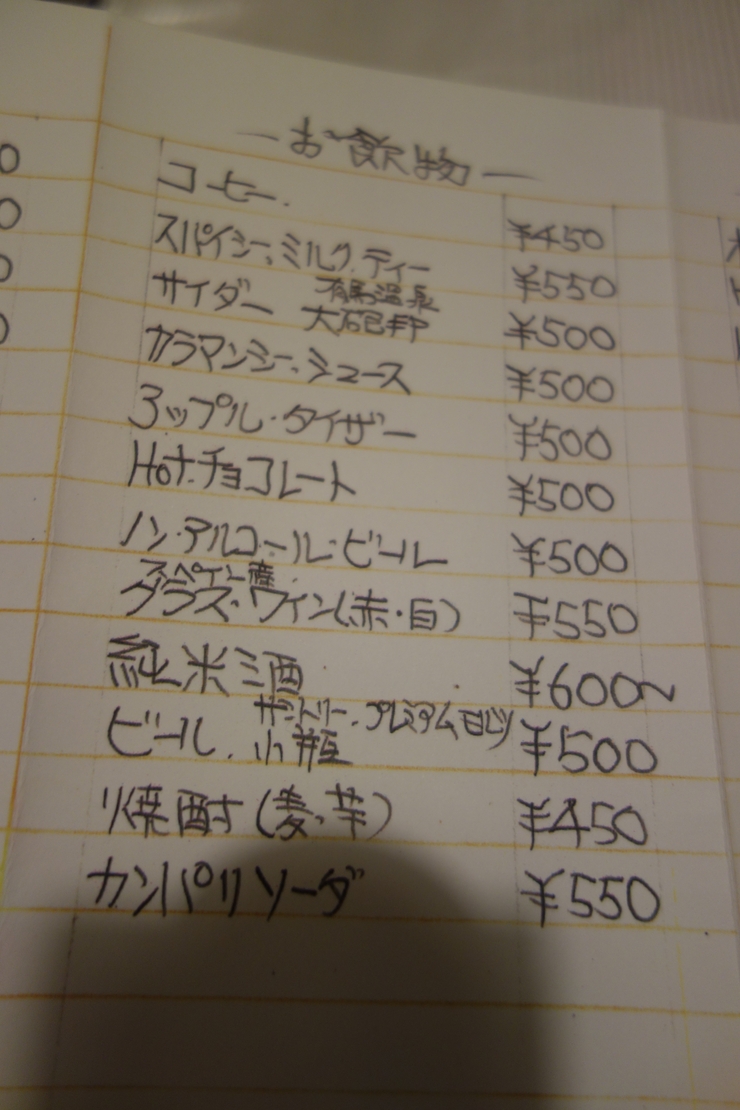 ーお飲物ー
コーヒー. ¥450
スパイシー、ミルク.ティー ¥550
サイダー 有馬温泉 大砲印 ¥500
カラマンシー、ジュース ¥500
アップル・タイザー ¥500
Hot.チョコレート ¥500
ノン・アルコール・ビール ¥500
スペイン産.
グラス・ワイン(赤・白) ¥550
純米酒 ¥600〜
ビール. サントリー.プレミアムモルツ 小瓶 ¥500
焼酎(麦、芋) ¥450
カンパリソーダ ¥550